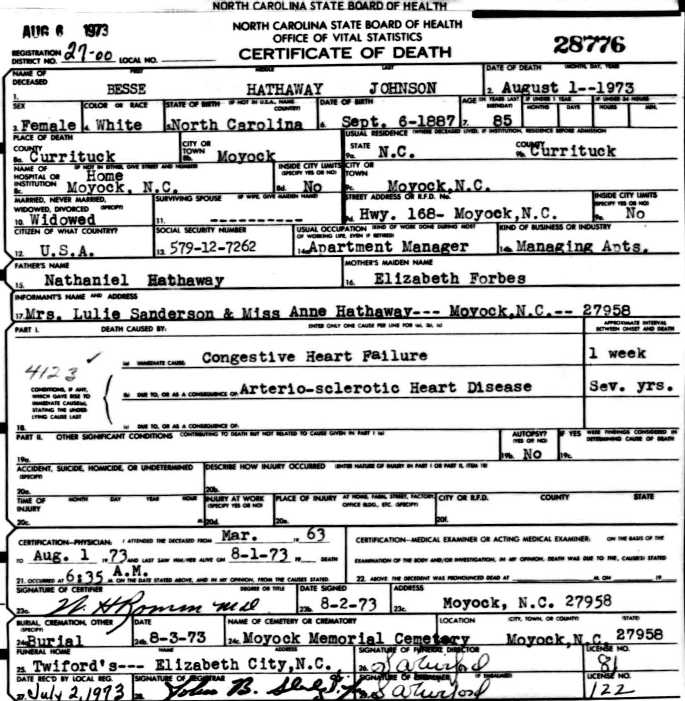 NORTH CAROLINA STATE BOARD OF HEALTH
AUG 6 1973
NORTH CAROLINA STATE BOARD OF HEALTH
OFFICE OF VITAL STATISTICS
REGISTRATION DISTRICT NO. 27-00 LOCAL NO.
CERTIFICATE OF DEATH
28776
NAME OF DECEASED FIRST MIDDLE LAST DATE OF DEATH (MONTH, DAY, YEAR)
1. BESSE HATHAWAY JOHNSON 2. August 1--1973
SEX COLOR OR RACE STATE OF BIRTH (IF NOT IN U.S.A., NAME COUNTRY) DATE OF BIRTH AGE (IN YEARS LAST BIRTHDAY) IF UNDER 1 YEAR MONTHS DAYS IF UNDER 24 HOURS HOURS MIN.
3. Female 4. White 5. North Carolina 6. Sept. 6-1887 7. 85
PLACE OF DEATH USUAL RESIDENCE (WHERE DECEASED LIVED, IF INSTITUTION, RESIDENCE BEFORE ADMISSION)
COUNTY CITY OR TOWN STATE COUNTY
8a. Currituck 8b. Moyock 9a. N.C. 9b. Currituck
NAME OF HOSPITAL OR INSTITUTION (IF NOT IN EITHER, GIVE STREET AND NUMBER) INSIDE CITY LIMITS (SPECIFY YES OR NO) CITY OR TOWN
Home
8c. Moyock, N.C. 8d. No 9c. Moyock,N.C.
MARRIED, NEVER MARRIED, WIDOWED, DIVORCED (SPECIFY) SURVIVING SPOUSE (IF WIFE, GIVE MAIDEN NAME) STREET ADDRESS OR R.F.D. No. INSIDE CITY LIMITS (SPECIFY YES OR NO)
10. Widowed 11. ----------- 9d. Hwy. 168- Moyock,N.C. 9e. No
CITIZEN OF WHAT COUNTRY? SOCIAL SECURITY NUMBER USUAL OCCUPATION (KIND OF WORK DONE DURING MOST OF WORKING LIFE, EVEN IF RETIRED) KIND OF BUSINESS OR INDUSTRY
12. U.S.A. 13. 579-12-7262 14a. Apartment Manager 14b. Managing Apts.
FATHER'S NAME MOTHER'S MAIDEN NAME
15. Nathaniel Hathaway 16. Elizabeth Forbes
INFORMANT'S NAME AND ADDRESS
17. Mrs. Lulie Sanderson & Miss Anne Hathaway--- Moyock,N.C.-- 27958
PART I. DEATH CAUSED BY: ENTER ONLY ONE CAUSE PER LINE FOR (a), (b), (c) APPROXIMATE INTERVAL BETWEEN ONSET AND DEATH
(a) IMMEDIATE CAUSE: Congestive Heart Failure 1 week
4123 ✓
CONDITIONS, IF ANY, WHICH GAVE RISE TO IMMEDIATE CAUSE(a), STATING THE UNDERLYING CAUSE LAST
(b) DUE TO, OR AS A CONSEQUENCE OF: Arterio-sclerotic Heart Disease Sev. yrs.
18. (c) DUE TO, OR AS A CONSEQUENCE OF:
PART II. OTHER SIGNIFICANT CONDITIONS CONTRIBUTING TO DEATH BUT NOT RELATED TO CAUSE GIVEN IN PART I (a) AUTOPSY? (YES OR NO) IF YES WERE FINDINGS CONSIDERED IN DETERMINING CAUSE OF DEATH
19a. 19b. No 19c.
ACCIDENT, SUICIDE, HOMICIDE, OR UNDETERMINED (SPECIFY) DESCRIBE HOW INJURY OCCURRED (ENTER NATURE OF INJURY IN PART I OR PART II, ITEM 18)
20a. 20b.
TIME OF INJURY MONTH DAY YEAR HOUR INJURY AT WORK (SPECIFY YES OR NO) PLACE OF INJURY AT HOME, FARM, STREET, FACTORY, OFFICE BLDG., ETC. (SPECIFY) CITY OR R.F.D. COUNTY STATE
20c. M. 20d. 20e. 20f.
CERTIFICATION—PHYSICIAN: I ATTENDED THE DECEASED FROM Mar. 19 63 CERTIFICATION—MEDICAL EXAMINER OR ACTING MEDICAL EXAMINER: ON THE BASIS OF THE
TO Aug. 1 19 73 AND LAST SAW HIM/HER ALIVE ON 8-1-73 19 DEATH EXAMINATION OF THE BODY AND/OR INVESTIGATION, IN MY OPINION, DEATH WAS DUE TO THE CAUSE(S) STATED
21. OCCURRED AT 6:35 A.M. M. ON THE DATE STATED ABOVE, AND IN MY OPINION, FROM THE CAUSES STATED 22. ABOVE. THE DECEDENT WAS PRONOUNCED DEAD AT M. ON 19
SIGNATURE OF CERTIFIER DEGREE OR TITLE DATE SIGNED ADDRESS
23a. MD 23b. 8-2-73 23c. Moyock, N.C. 27958
BURIAL, CREMATION, OTHER (SPECIFY) DATE NAME OF CEMETERY OR CREMATORY LOCATION (CITY, TOWN, OR COUNTY) (STATE)
24a. Burial 24b. 8-3-73 24c. Moyock Memorial Cemetery Moyock,N.C. 27958
FUNERAL HOME NAME ADDRESS SIGNATURE OF FUNERAL DIRECTOR LICENSE NO.
25. Twiford's--- Elizabeth City,N.C. 26. 81
DATE REC'D BY LOCAL REG. SIGNATURE OF REGISTRAR SIGNATURE OF EMBALMER (IF EMBALMED) LICENSE NO.
27. July 2, 1973 28. John B. 122